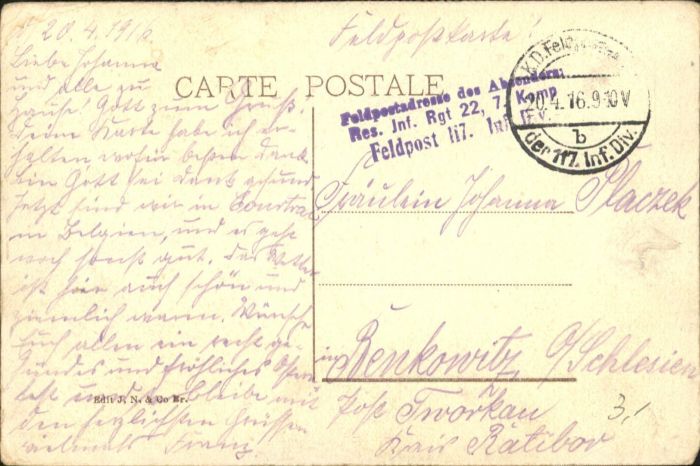 20.4.1916
Liebe Johanna
und alle zu
Hause! Gott zum Gruß!
Deine Karte habe ich er-
halten wofür besten Dank
bin Gott sei Dank gesund
Jetzt sind wir in
in Belgien, und es geht
noch sonst gut. Das Wetter
ist hier auch schön und
ziemlich warm. Wünsche
Euch allen ein recht ge-
sundes und fröhliches Oster
fest und bleibe mit
den herzlichsten Grüssen
vielmals Franz.
Feldpostkarte!
CARTE POSTALE
Feldpostadresse des Absenders:
Res. Inf. Rgt 22, 7. Komp
Feldpost 117. Inf
K.D. Feldp
20.4.16.9-10V
b
der 117. Inf. Div.
Fräulein Johanna Placzek
in Benkowitz O/Schlesien
Post Tworkau
Kreis Ratibor
3,
Edit J. N. & Co Br.